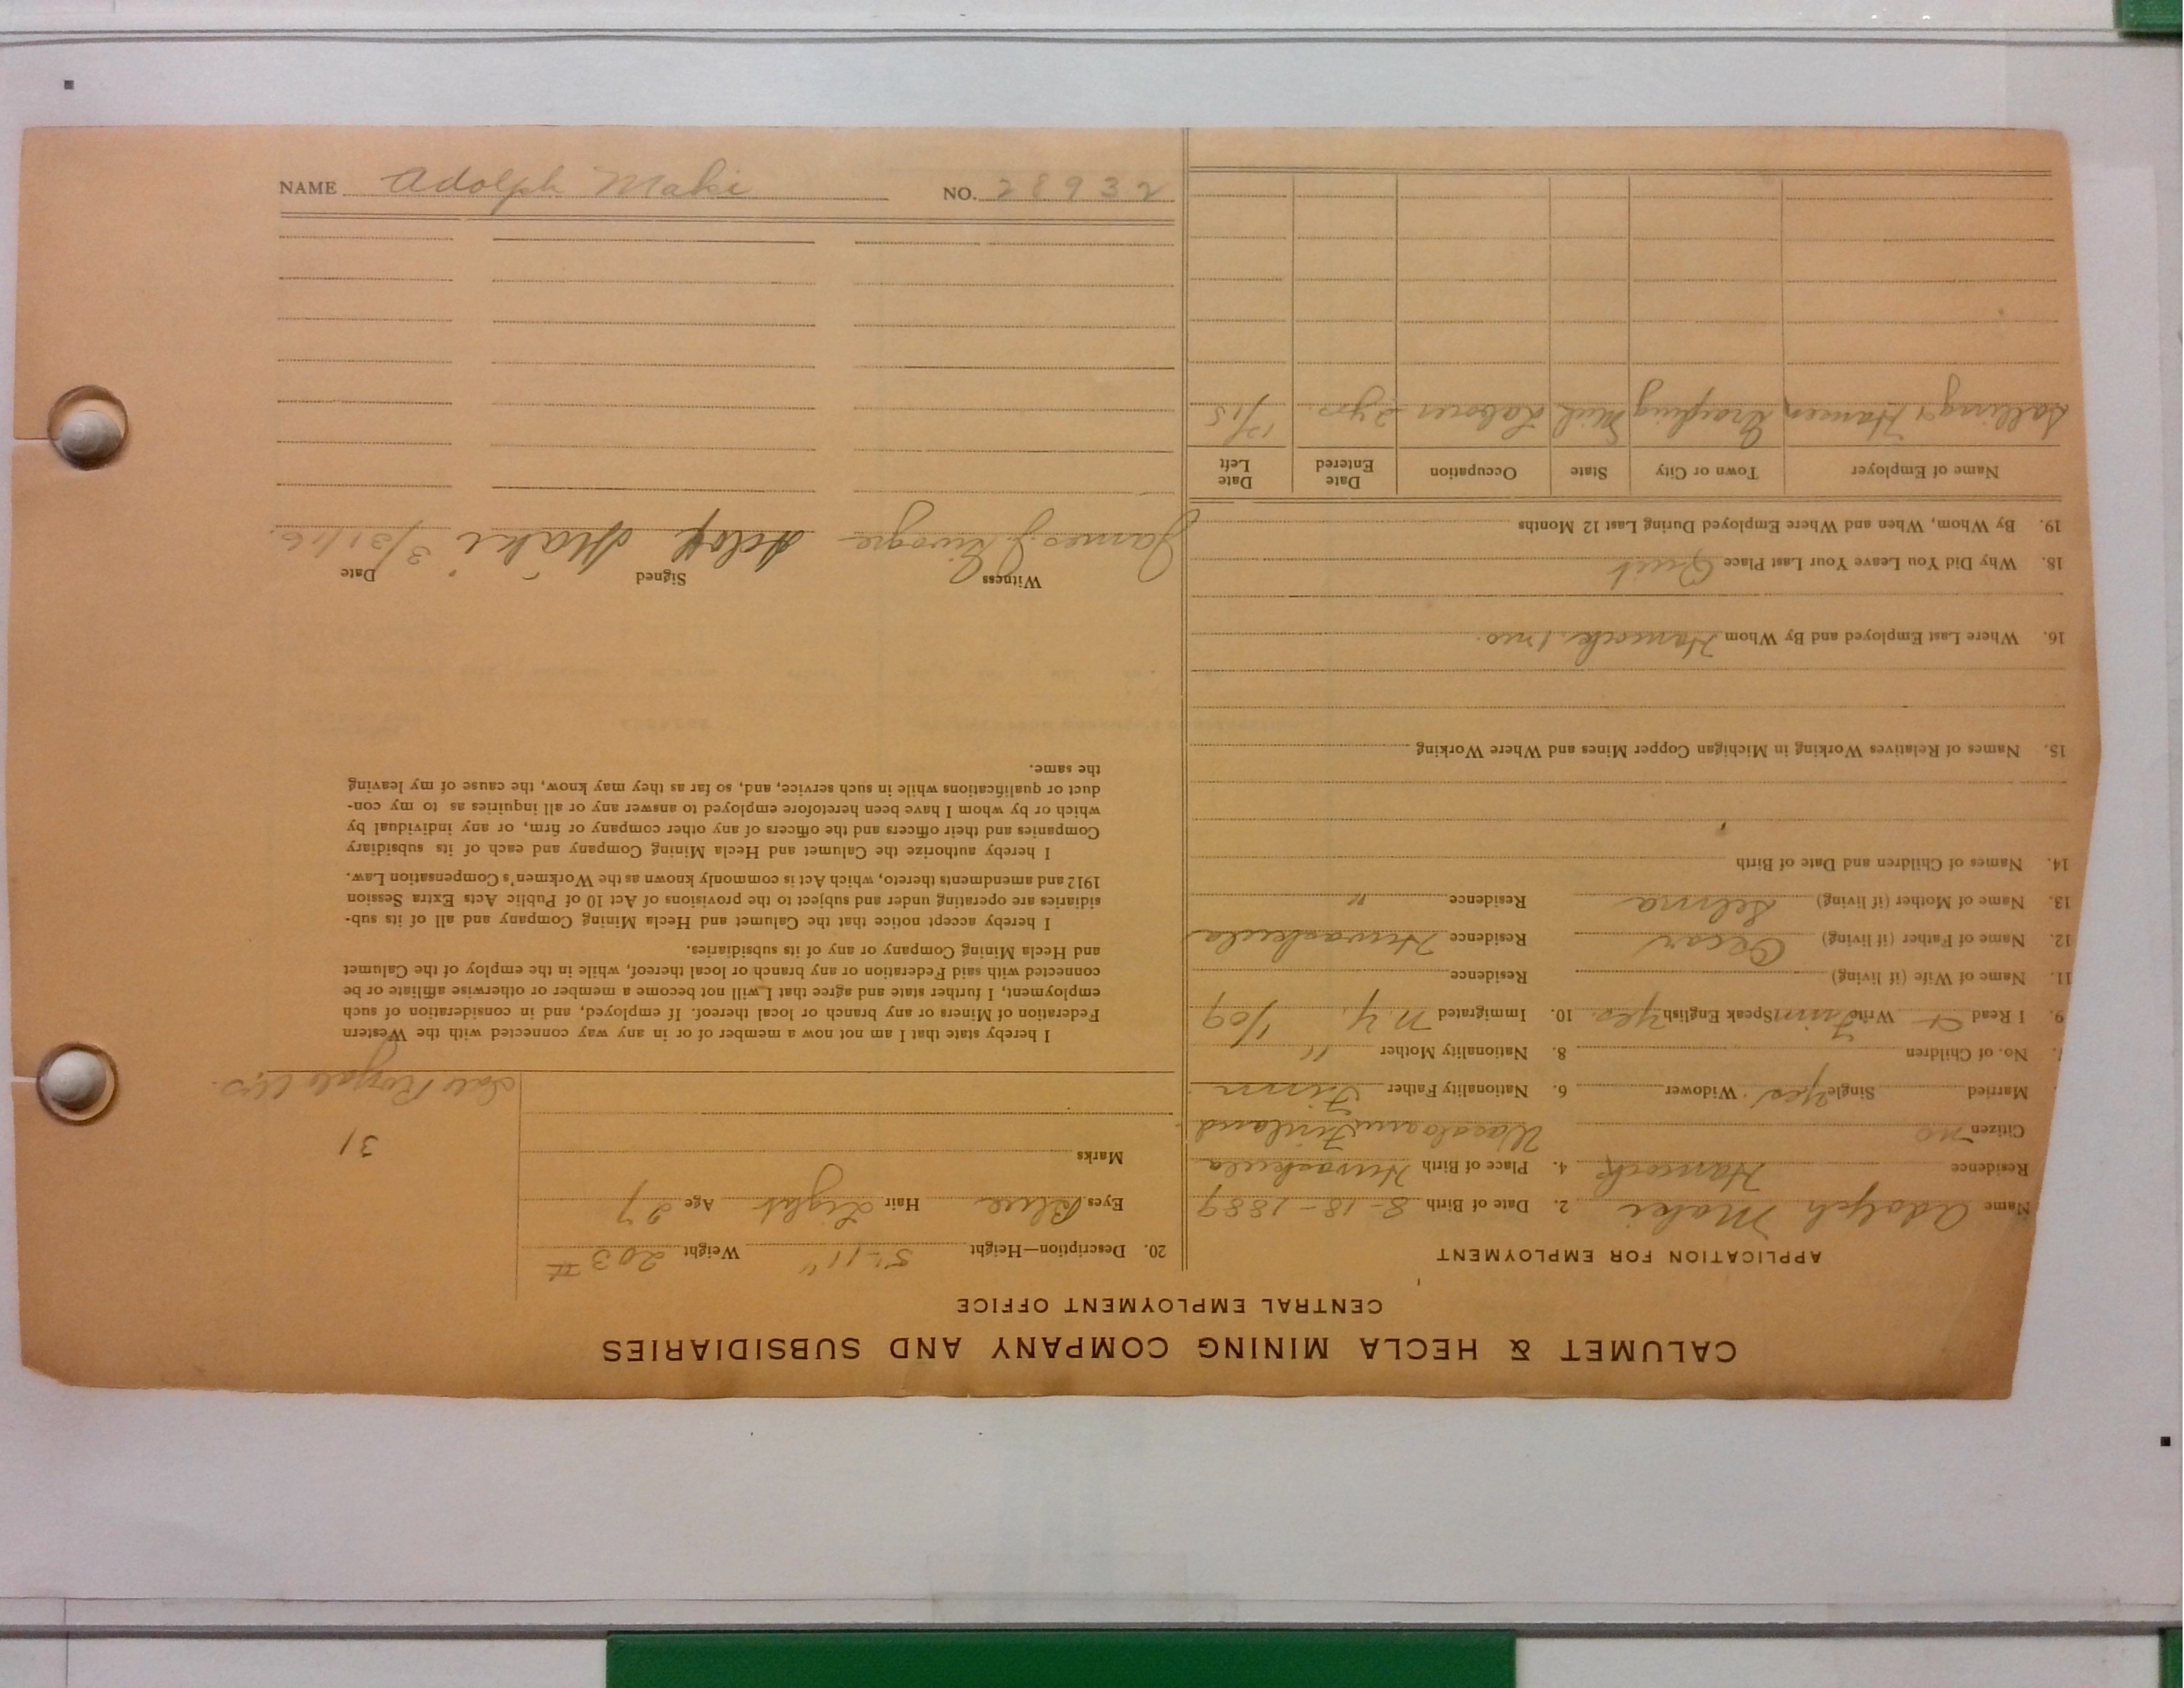 CALUMET & HECLA MINING COMPANY AND SUBSIDIARIES
CENTRAL EMPLOYMENT OFFICE
APPLICATION FOR EMPLOYMENT
Name Adolph Maki 2. Date of Birth 8-18-1889
Residence Hancock 4. Place of Birth
Citizen no Finland
Married Single yes Widower 6. Nationality Father Finn
No. of Children 8. Nationality Mother "
9. I Read Write Finn Speak English yes. 10. Immigrated N.Y. 1/09
11. Name of Wife (if living) Residence
12. Name of Father (if living) Oscar Residence
13. Name of Mother (if living) Selma Residence "
14. Names of Children and Date of Birth
15. Names of Relatives Working in Michigan Copper Mines and Where Working
16. Where Last Employed and By Whom Hancock 1 mo.
18. Why Did You Leave Your Last Place Quit
19. By Whom, When and Where Employed During Last 12 Months
Name of Employer Town or City State Occupation Date Entered Date Left
Salling & Hansen Grayling Mich Laborer 2 yrs. 12/15
20. Description—Height 5'-11" Weight 203 #
Eyes Blue Hair Light Age 27
Marks
31
Isle Royale
I hereby state that I am not now a member of or in any way connected with the Western
Federation of Miners or any branch or local thereof. If employed, and in consideration of such
employment, I further state and agree that I will not become a member or otherwise affiliate or be
connected with said Federation or any branch or local thereof, while in the employ of the Calumet
and Hecla Mining Company or any of its subsidiaries.
I hereby accept notice that the Calumet and Hecla Mining Company and all of its sub-
sidiaries are operating under and subject to the provisions of Act 10 of Public Acts Extra Session
1912 and amendments thereto, which Act is commonly known as the Workmen's Compensation Law.
I hereby authorize the Calumet and Hecla Mining Company and each of its subsidiary
Companies and their officers and the officers of any other company or firm, or any individual by
which or by whom I have been heretofore employed to answer any or all inquiries as to my con-
duct or qualifications while in such service, and, so far as they may know, the cause of my leaving
the same.
Witness Signed Date
James J. Maki 3/31/16.
NAME Adolph Maki NO. 28932